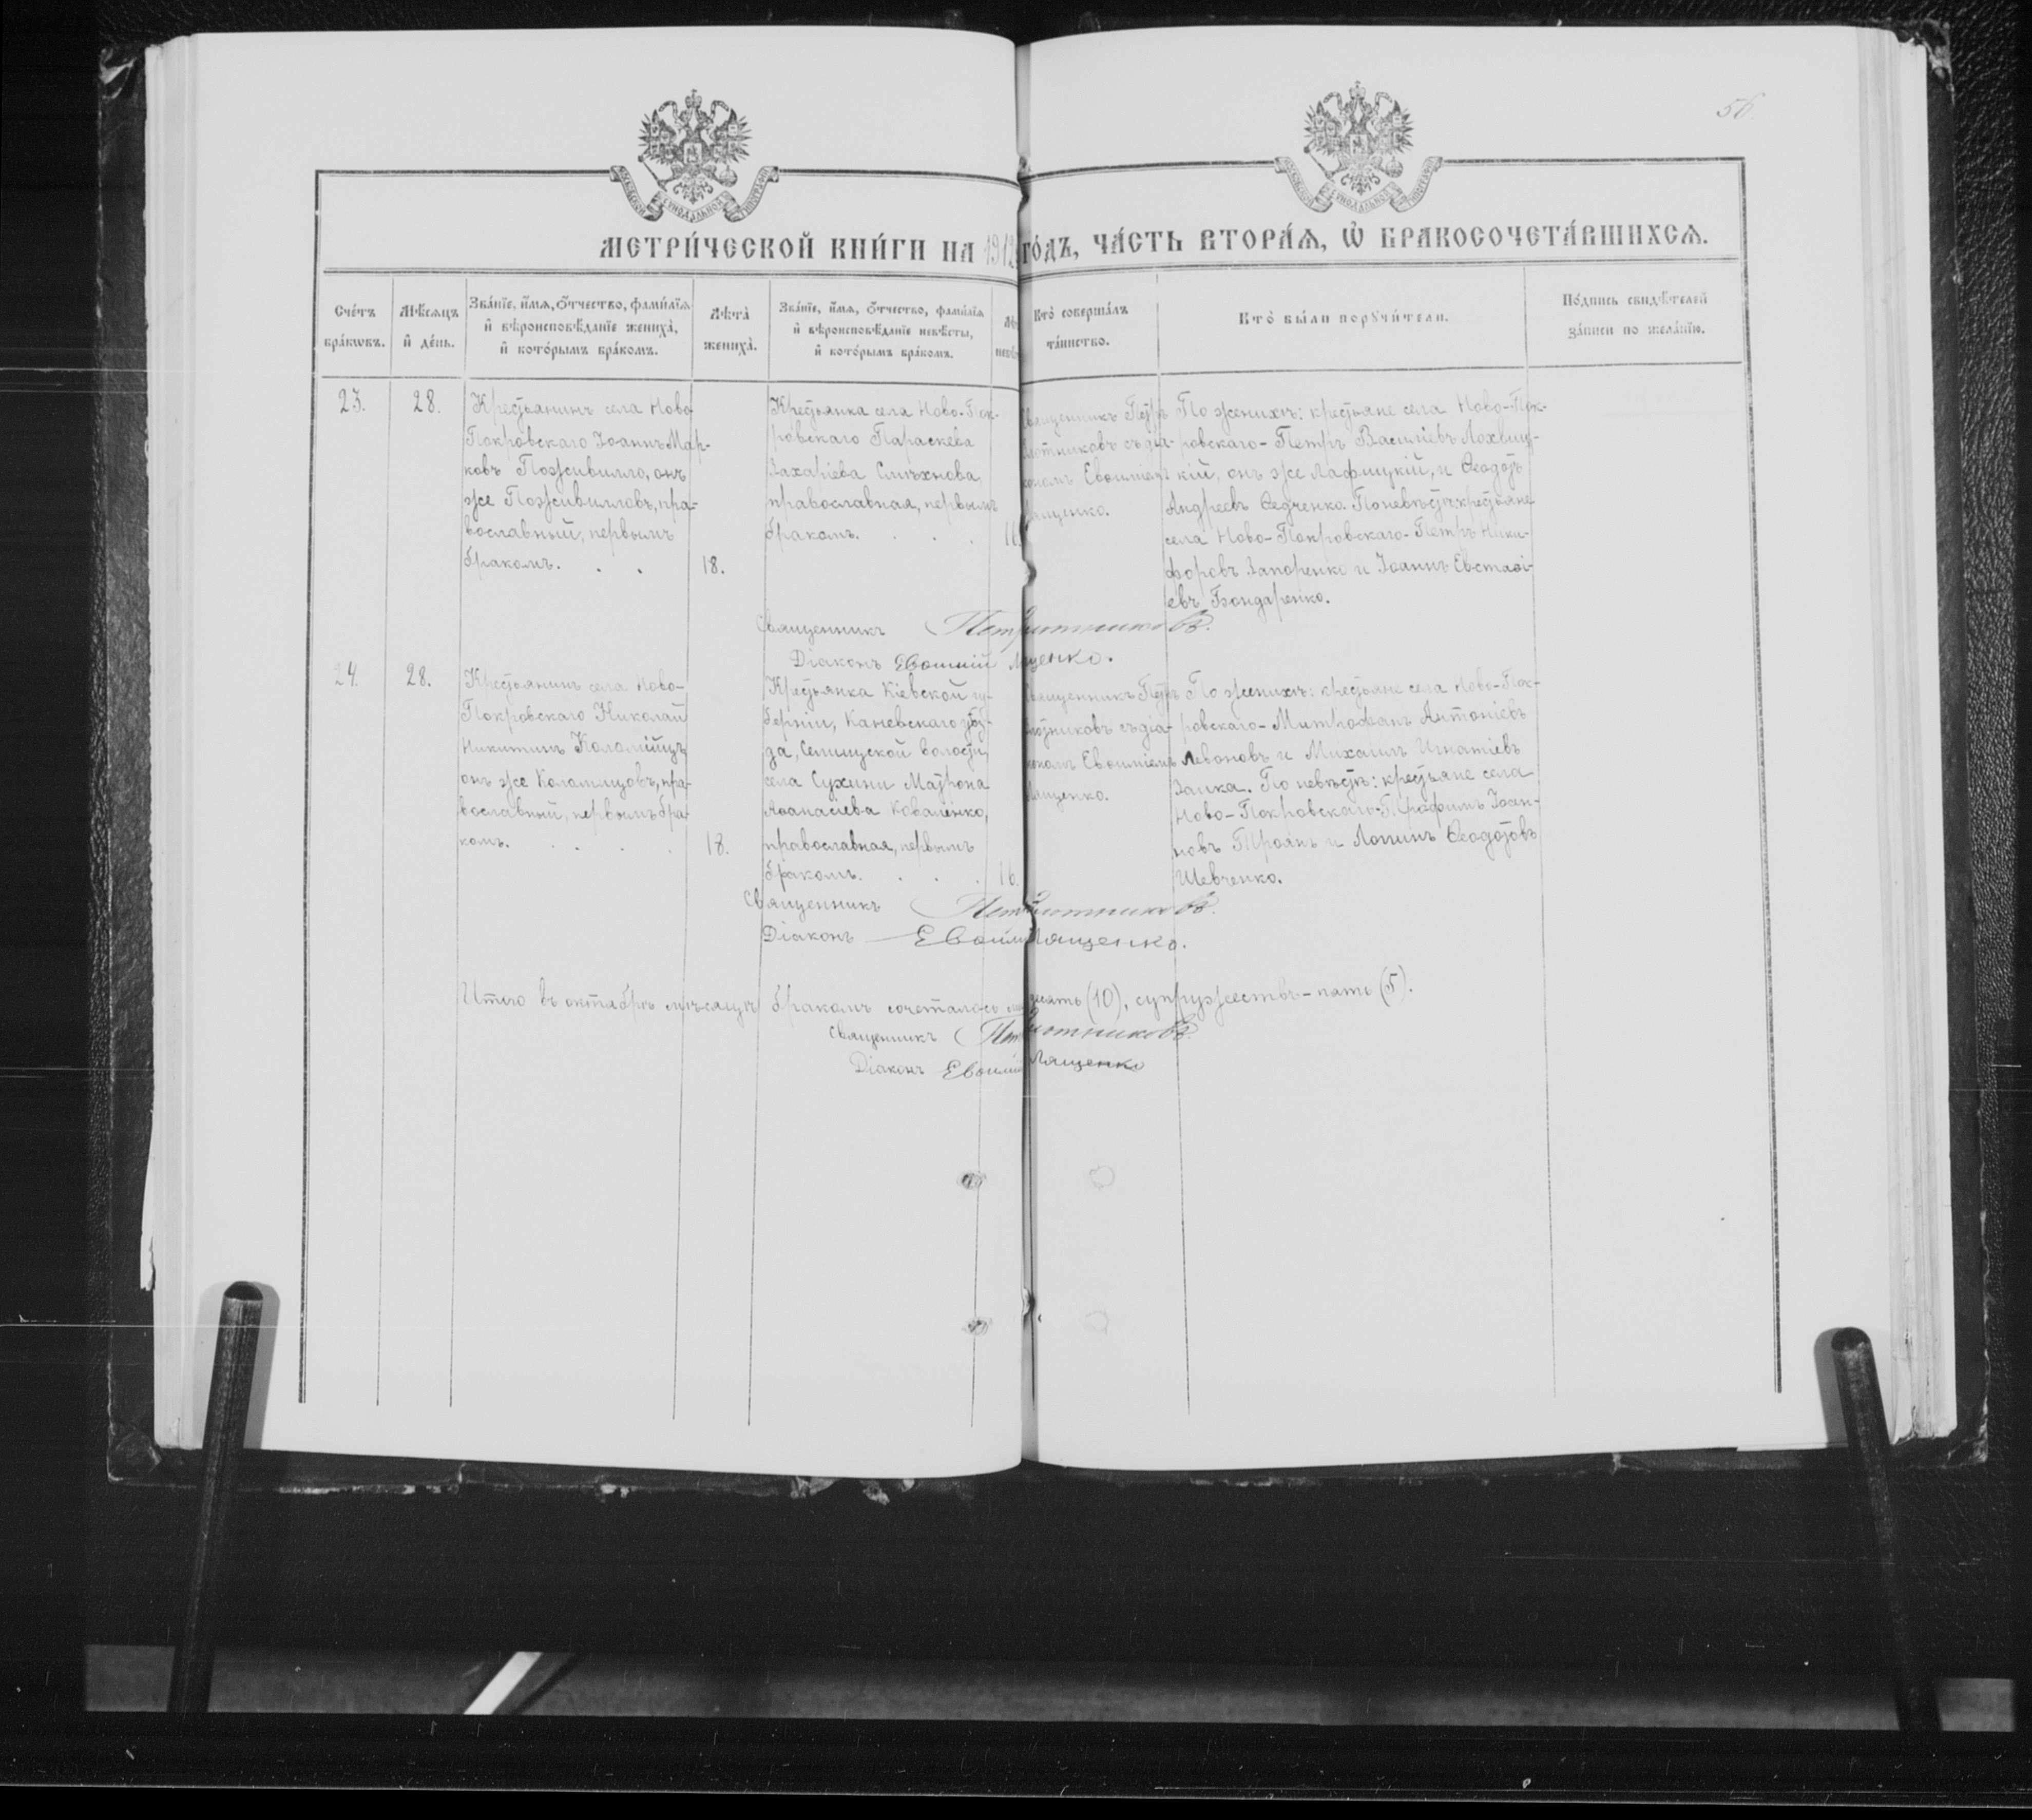 56.
МОСКОВСКОЙ СѴНОДАЛЬНОЙ ТИПОГРАФІИ
МОСКОВСКОЙ СѴНОДАЛЬНОЙ ТИПОГРАФІИ
МЕТРИ́ЧЕСКОЙ КНИ́ГИ НА 1912 ГО́ДЪ, ЧА́СТЬ ВТОРА́Ѧ, Ѡ҆ БРАКОСОЧЕТА́ВШИХСѦ.
Сче́тъ
бра́кѡвъ.
Мѣ́сѧцъ
и҆ де́нь.
Зва́нїе, и҆́мѧ, ѻ҆́тчество, фами́лїѧ
и҆ вѣроисповѣ́данїе жениха̀,
и҆ кото́рымъ бра́комъ.
Лѣ́та̀
жениха̀.
Зва́нїе, и҆́мѧ, ѻ҆́тчество, фами́лїѧ
и҆ вѣроисповѣ́данїе невѣ́сты,
и҆ кото́рымъ бра́комъ.
Кто̀ соверша́лъ
та́инство.
Кто̀ бы́ли порꙋчи́тели.
По́дпись свидѣ́телей
за́писи по жела́нїю.
23.
28.
Крестьянинъ села Ново
Покровскаго Іоаннъ Мар-
ковъ Поживилло, онъ
же Поживилловъ, пра-
вославный, первымъ
бракомъ. . .
18.
Крестьянка села Ново-Пок-
ровскаго Параскева
Захаріева Смѣхнова,
православная, первымъ
бракомъ. . . .
Священникъ Петръ
съ діа-
кономъ Евѳиміемъ
Лященко.
По женихѣ: крестьяне села Ново-Пок-
ровскаго - Петръ Василіевъ Лохвиц-
кій, онъ же Лафицкій, и Ѳеодотъ
Андреевъ Ѳедченко. По невѣстѣ: крестьяне
села Ново-Покровскаго - Петръ Ники-
форовъ Запоренко и Іоаннъ Евстаѳі-
евъ Бондаренко.
Священникъ
Діаконъ Евѳимій Лященко.
24.
28.
Крестьянинъ села Ново-
Покровскаго Николай
Никитинъ Коломійцъ,
онъ же Коломицовъ, пра-
вославный, первымъ бра-
комъ. . . . .
18.
Крестьянка Кіевской гу-
берніи, Каневскаго уѣз-
да, Селищской волости,
села Сухини Матрона
Аѳанасіева Коваленко,
православная, первымъ
бракомъ. . . .
16.
Священникъ Петръ
съ діа-
кономъ Евѳиміемъ
Лященко.
По женихѣ: крестьяне села Ново-Пок-
ровскаго - Митрофанъ Антоніевъ
Левоновъ и Михаилъ Игнатіевъ
Заика. По невѣстѣ: крестьяне села
Ново-Покровскаго - Трофимъ Іоан-
новъ Троянъ и Логинъ Ѳеодотовъ
Шевченко.
Священникъ
Діаконъ Евѳимій Лященко.
Итого въ октябрѣ мѣсяцѣ бракомъ сочеталось десять (10), супружествъ - пять (5).
Священникъ
Діаконъ Евѳимій Лященко